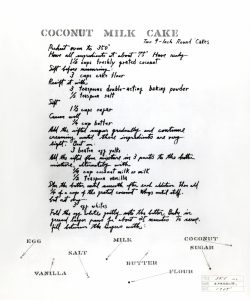 COCONUT MILK CAKE
Two 9-inch Round Cakes
Preheat oven to 350°
Have all ingredients at about 75° Have ready
1½ cups freshly grated coconut
Sift before measuring
3 cups cake flour
Resift it with
3 teaspoons double-acting baking powder
½ teaspoon salt
Sift
1½ cups sugar
Cream well
¾ cup butter
Add the sifted sugar gradually and continue
creaming until these ingredients are very
light. Beat in
3 beaten egg yolks
Add the sifted flour mixture in 3 parts to the butter
mixture, alternately with
¾ cup coconut milk or milk
½ teaspoon vanilla
Stir the batter until smooth after each addition. Then add
¾ of a cup of the grated coconut. Whip until stiff,
but not dry
egg whites
Fold the egg whites gently into the batter. Bake in
greased layer pans for about minutes. To serve,
fill between the layers with:
EGG
MILK
COCONUT
SUGAR
SALT
VANILLA
BUTTER
FLOUR